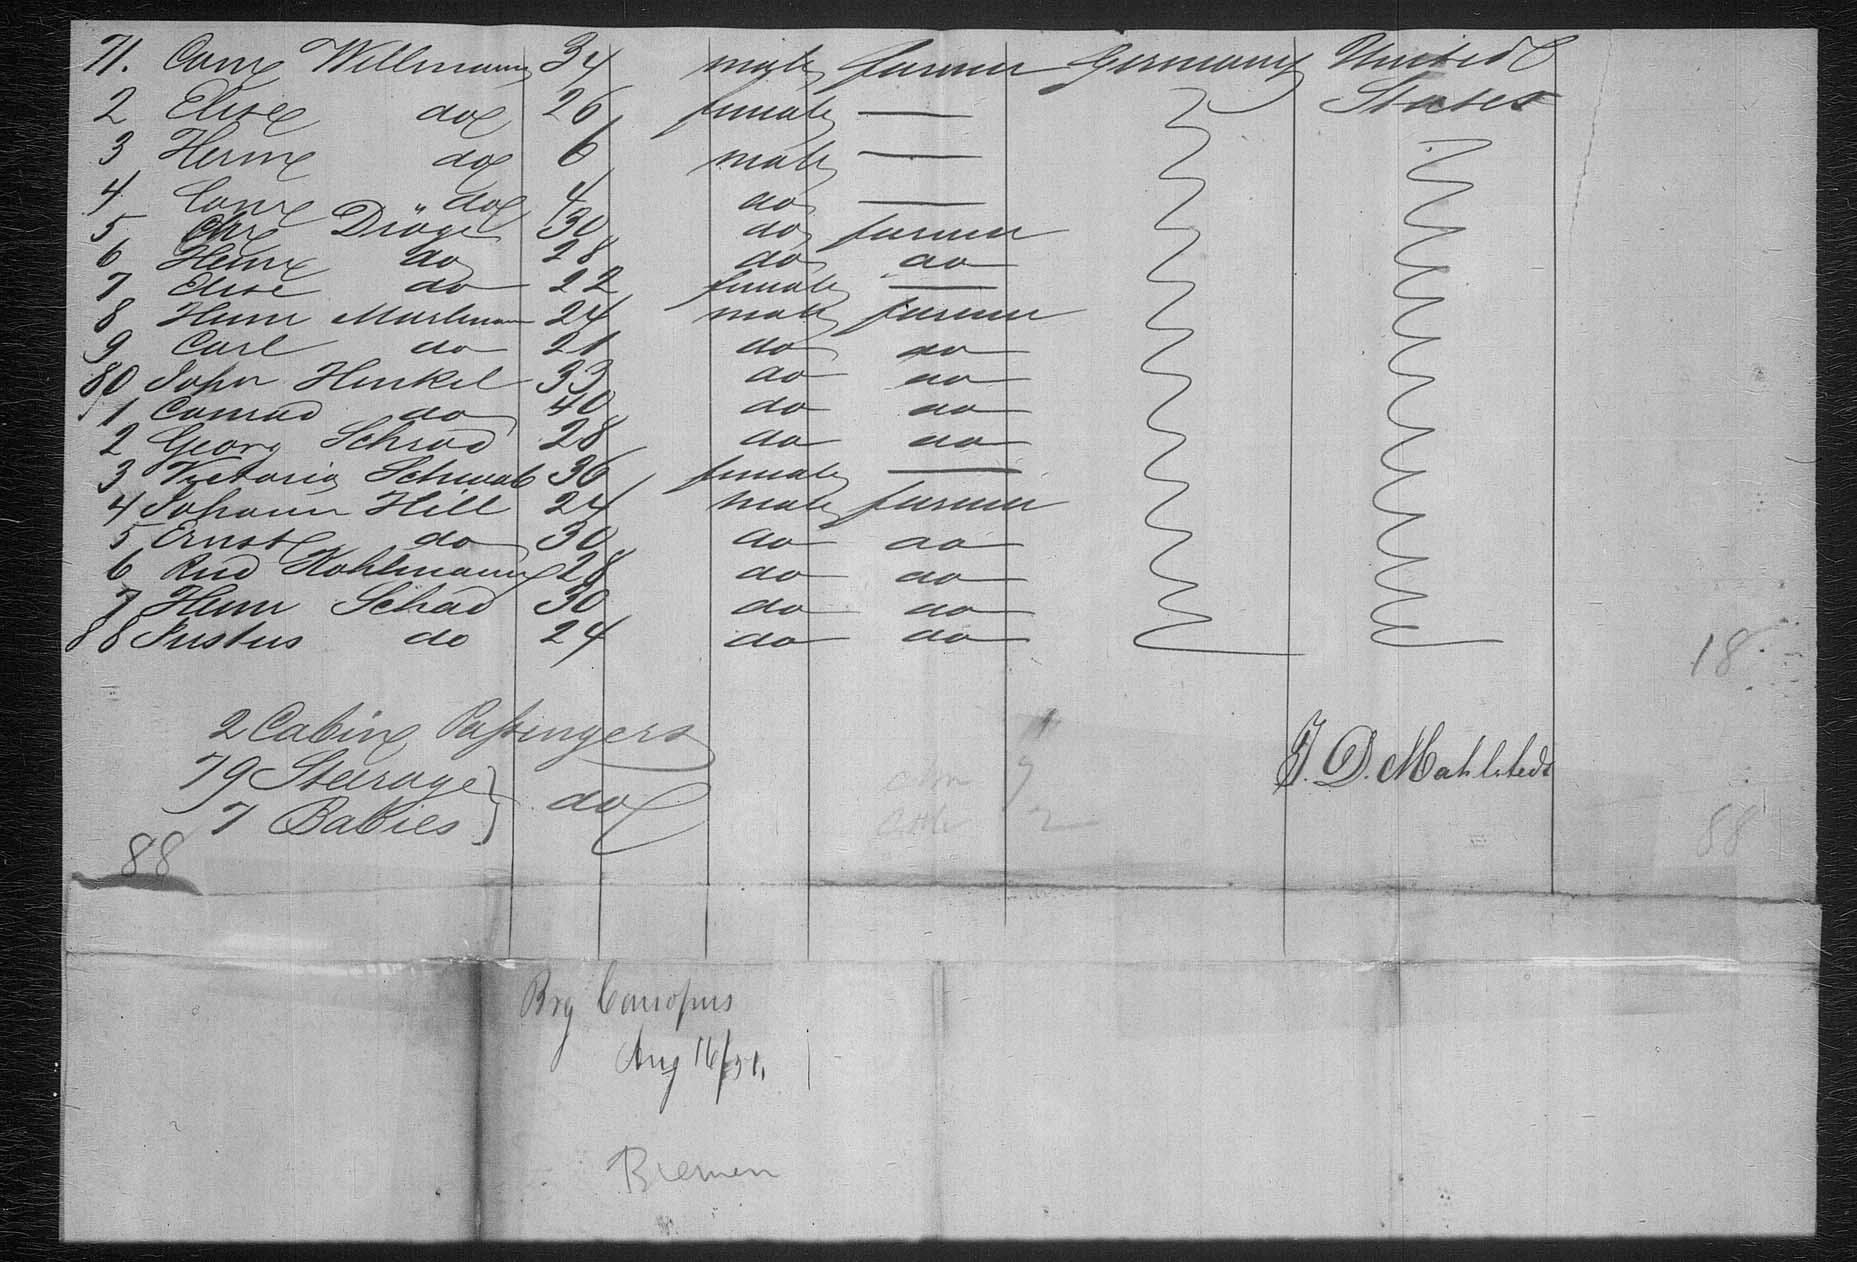 71. Conr Willmann 34 male farmer Germany United
2 Elise do 26 female — States
3 Herm do 6 male —
4 Conr do 4 do —
5 Chr Dröge 30 do farmer
6 Heinr do 28 do do
7 Elise do 22 female —
8 Heinr 24 male farmer
9 Carl do 21 do do
80 John Henkel 33 do do
1 Conrad do 40 do do
2 Georg Schrod 28 do do
3 Victoria Schwab 36 female —
4 Johann Hill 24 male farmer
5 Ernst do 30 do do
6 Rud Kohlmann 28 do do
7 Heinr Schad 30 do do
88 Justus do 24 do do
18
2 Cabin Passengers
79 Steerage } do
7 Babies
J. D. Mahlstedt
88 88
Brg Canopus
Aug 16/51.
Bremen